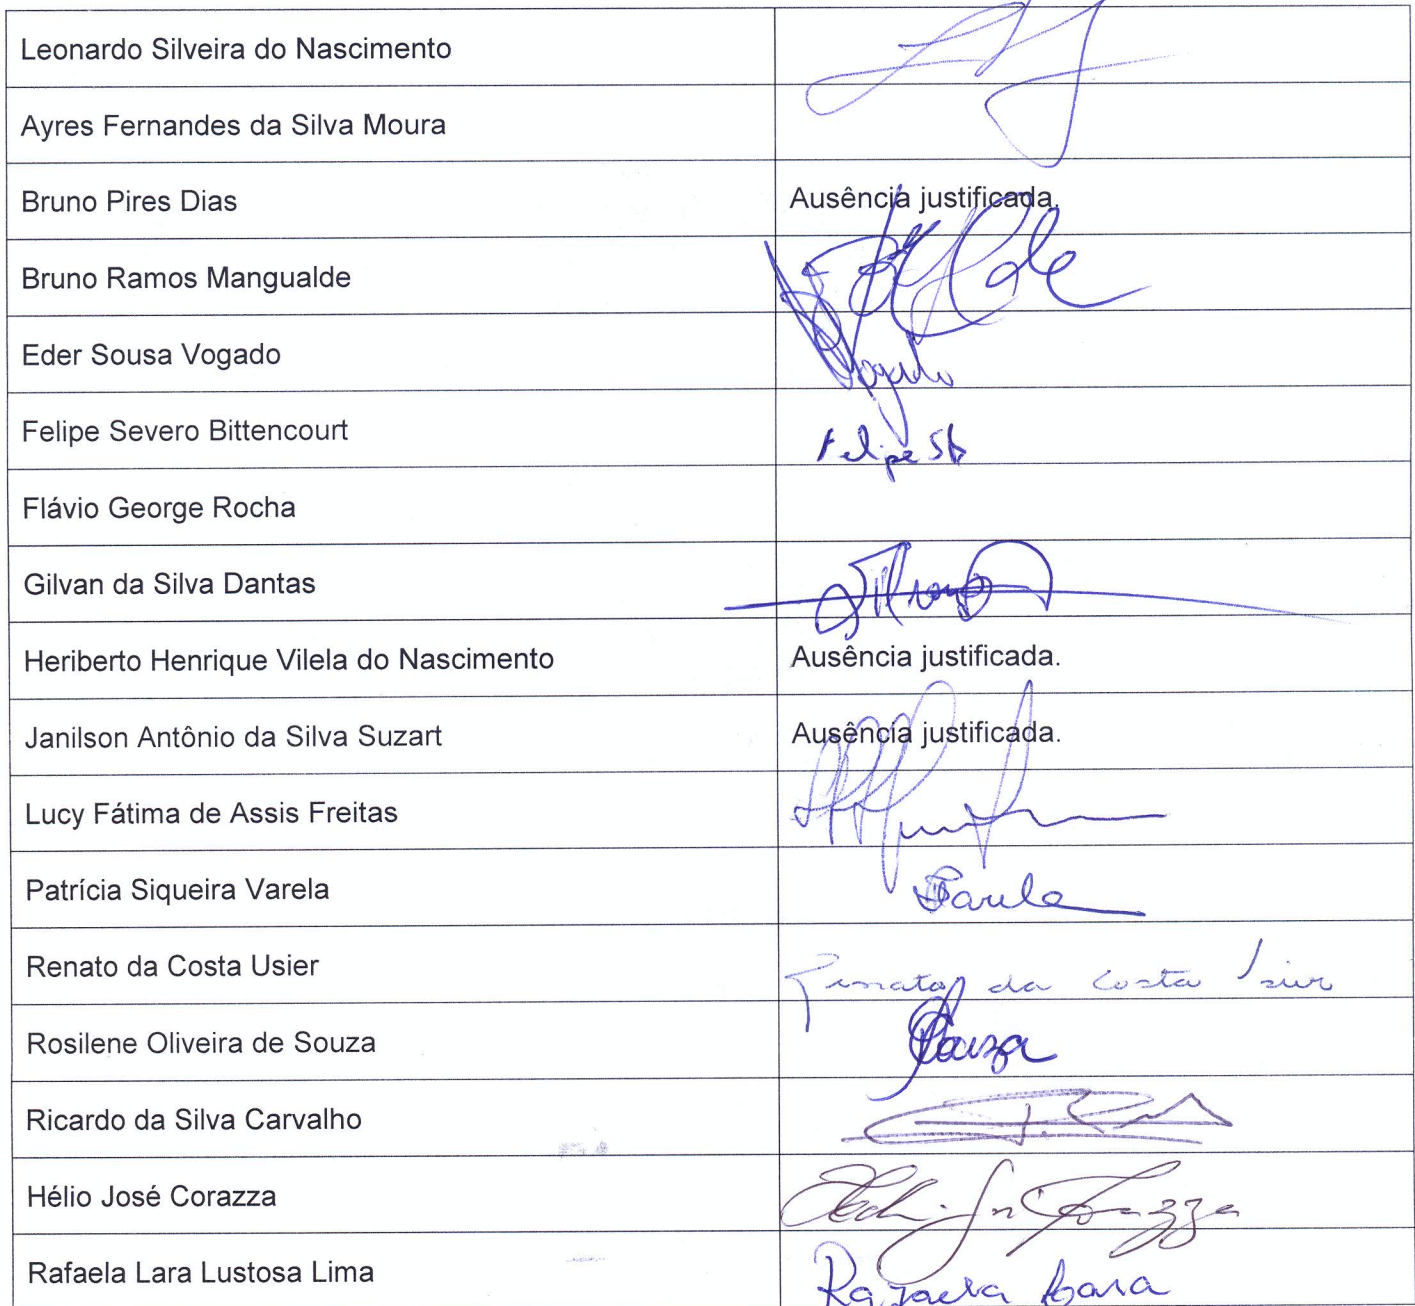 Leonardo Silveira do Nascimento
Ayres Fernandes da Silva Moura
Bruno Pires Dias Ausência justificada.
Bruno Ramos Mangualde
Eder Sousa Vogado Vogado
Felipe Severo Bittencourt Felipe Sb
Flávio George Rocha
Gilvan da Silva Dantas
Heriberto Henrique Vilela do Nascimento Ausência justificada.
Janilson Antônio da Silva Suzart Ausência justificada.
Lucy Fátima de Assis Freitas
Patrícia Siqueira Varela
Renato da Costa Usier Renato da Costa Usier
Rosilene Oliveira de Souza Souza
Ricardo da Silva Carvalho
Hélio José Corazza
Rafaela Lara Lustosa Lima Rafaela Lara